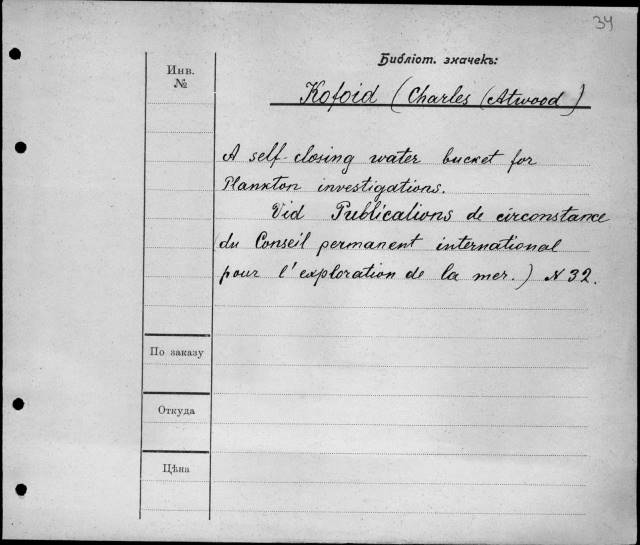 34
Библіот. значекъ:
Инв.
№
Kofoid (Charles (Atwood)
A self-closing water bucket for
Plankton investigations.
Vid Publications de circonstance
du Conseil permanent international
pour l'exploration de la mer.) N 32.
По заказу
Откуда
Цѣна